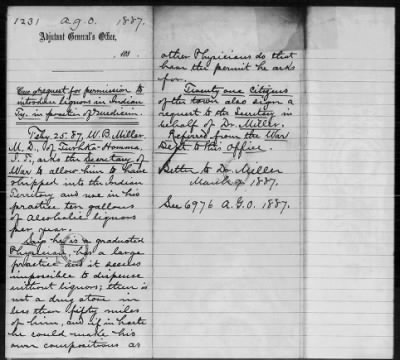 1231 A.G.O. 1887.
Adjutant General's Office,
188
request for permission to
introduce liquors in Indian
Ty. in practice of medicine.
Feby. 25. 87, W. B. Miller
M. D., of Tushka-Homma,
I. T., asks the Secretary of
War to allow him to have
shipped into the Indian
Territory and use in his
practice ten gallons
of alcoholic liquors
per year.
Says he is a graduated
Physician, has a large
practice and it seems
impossible to dispense
without liquors; there is
not a drug store in
less than fifty miles
of him, and if in haste
he could make his
own compositions as
other Physicians do that
have the permit he asks
for.
Twenty one citizens
of the town also sign a
request to the Secretary in
behalf of Dr. Miller.
Referred from the War
Dept to this office.
Letter to Dr. Miller
March 9. 1887.
See 6976 A.G.O. 1887.